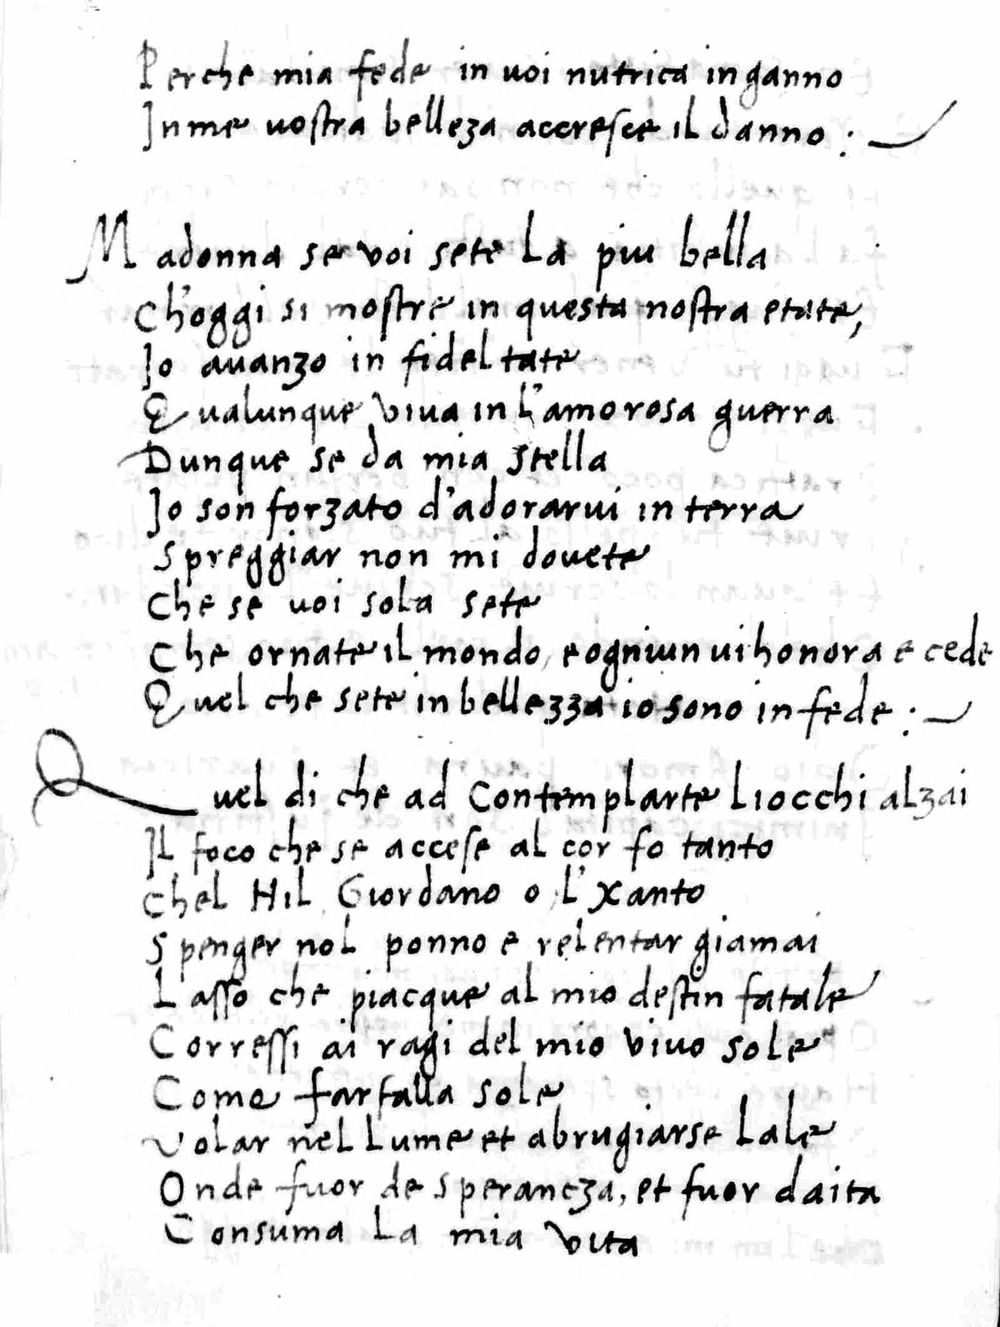 Perche mia fede in voi nutrica inganno
In me vostra belleza accresce il danno :
Madonna se voi sete La piu bella
Ch'oggi si mostre in questa nostra etate,
Io avanzo in fideltate
Qualunque viva in L'amorosa guerra
Dunque se da mia stella
Io son forzato d'adorarvi in terra
Spreggiar non mi dovete
Che se voi sola sete
Che ornate il mondo, e ogniun vi honora e cede
Quel che sete in bellezza io sono in fede :
Quel di che ad Contemplarte Liocchi alzai
Il foco che se accese al cor fo tanto
Chel Nil Giordano o L'Xanto
Spenger nol ponno e relentar giamai
Lasso che piacque al mio destin fatale
Corressi ai ragi del mio vivo sole
Come farfalla sole
Volar nel Lume et abrugiarse Lale
Onde fuor de sperancza, et fuor daita
Consuma La mia vita